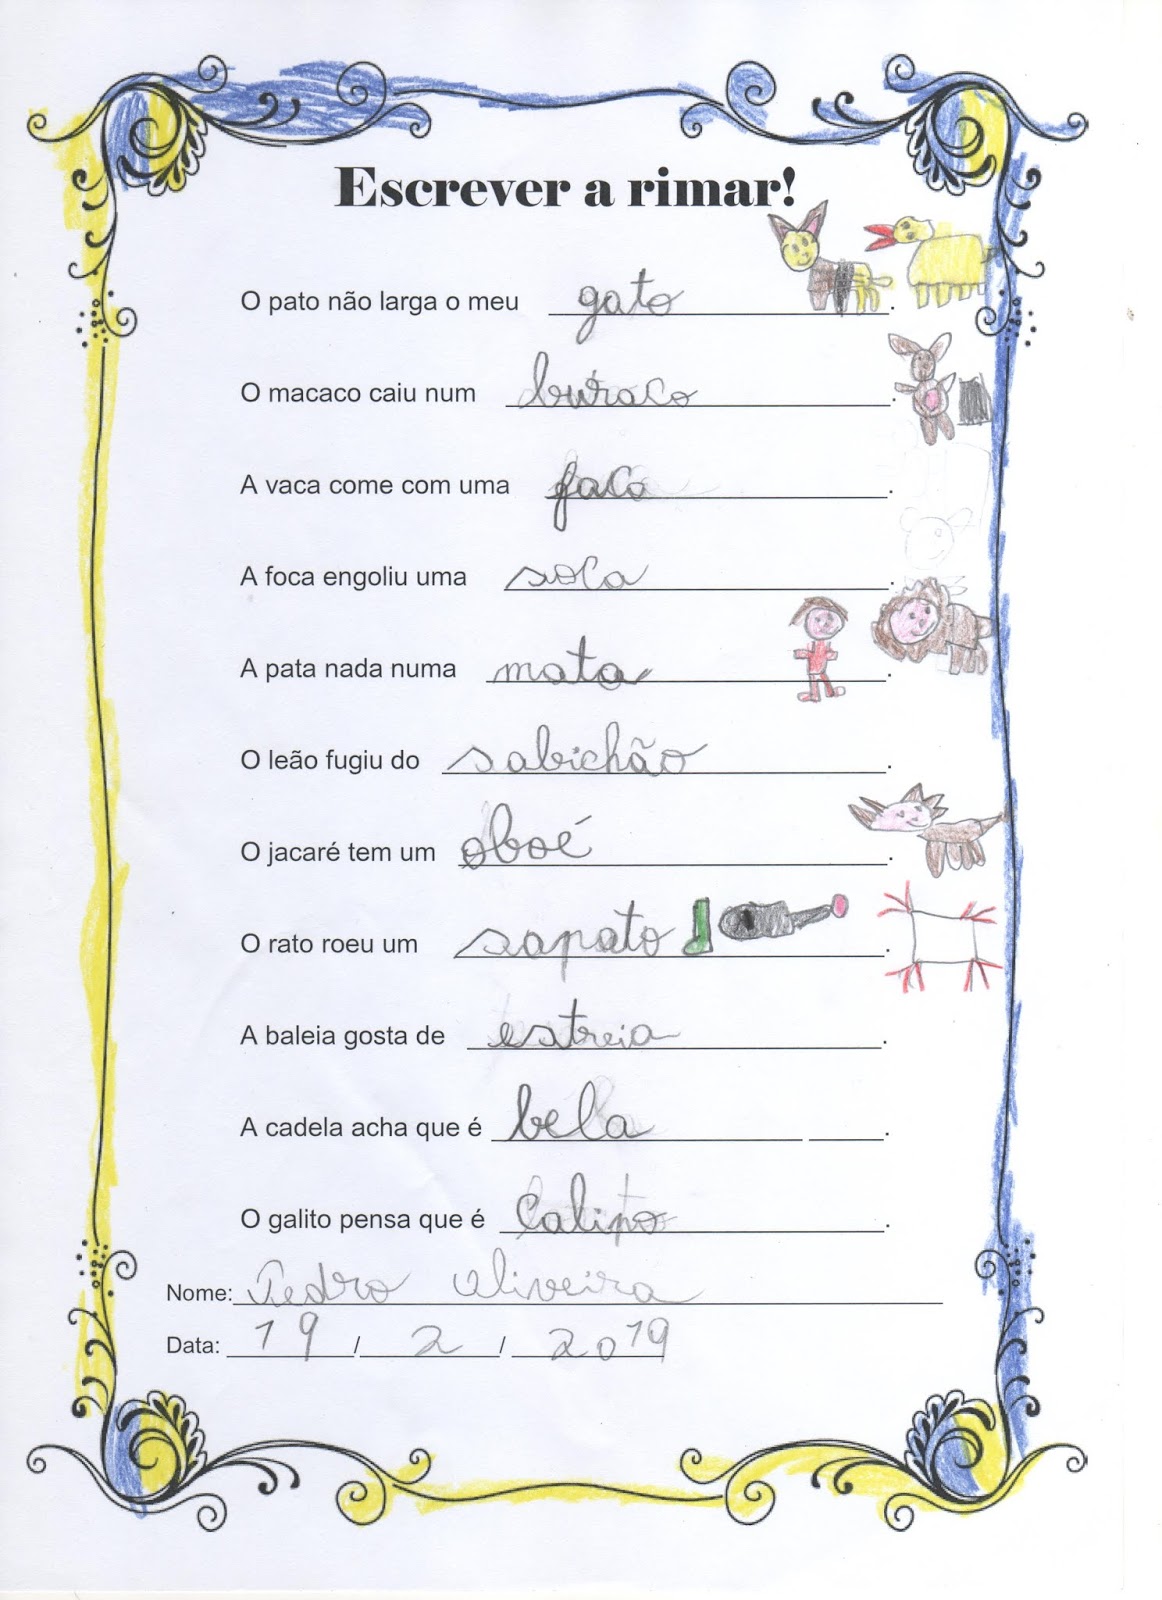 Escrever a rimar!
O pato não larga o meu gato.
O macaco caiu num buraco.
A vaca come com uma faca.
A foca engoliu uma soca.
A pata nada numa mata.
O leão fugiu do sabichão.
O jacaré tem um oboé.
O rato roeu um sapato.
A baleia gosta de estreia.
A cadela acha que é bela.
O galito pensa que é
Nome: Pedro Oliveira
Data: 19 / 2 / 2019